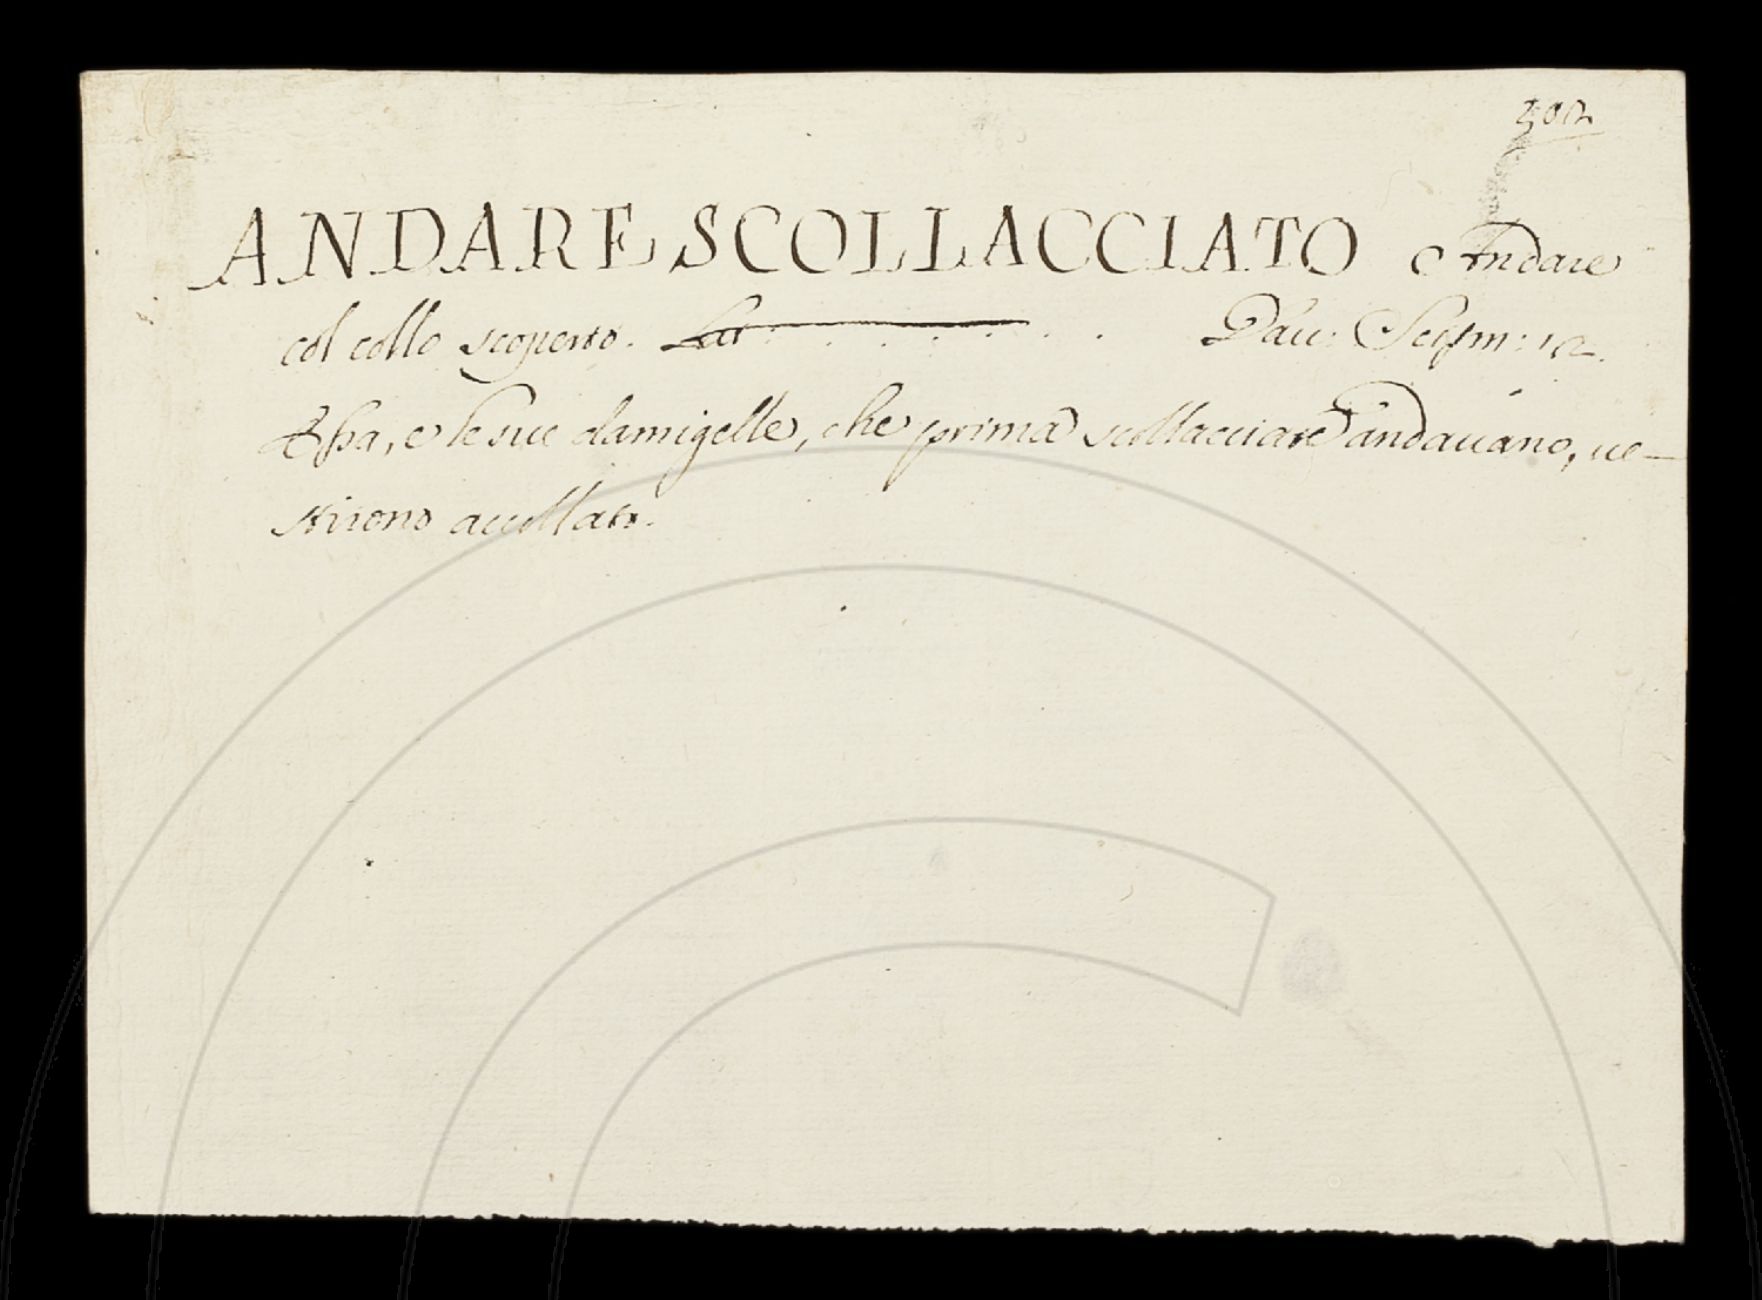 502
ANDARE SCOLLACCIATO Andare
col collo scoperto. Lat: . . . . . . Dav: Scism: 12.
Essa, e le sue damigelle, che prima scollacciate andavano, ve-
stirono accollate.